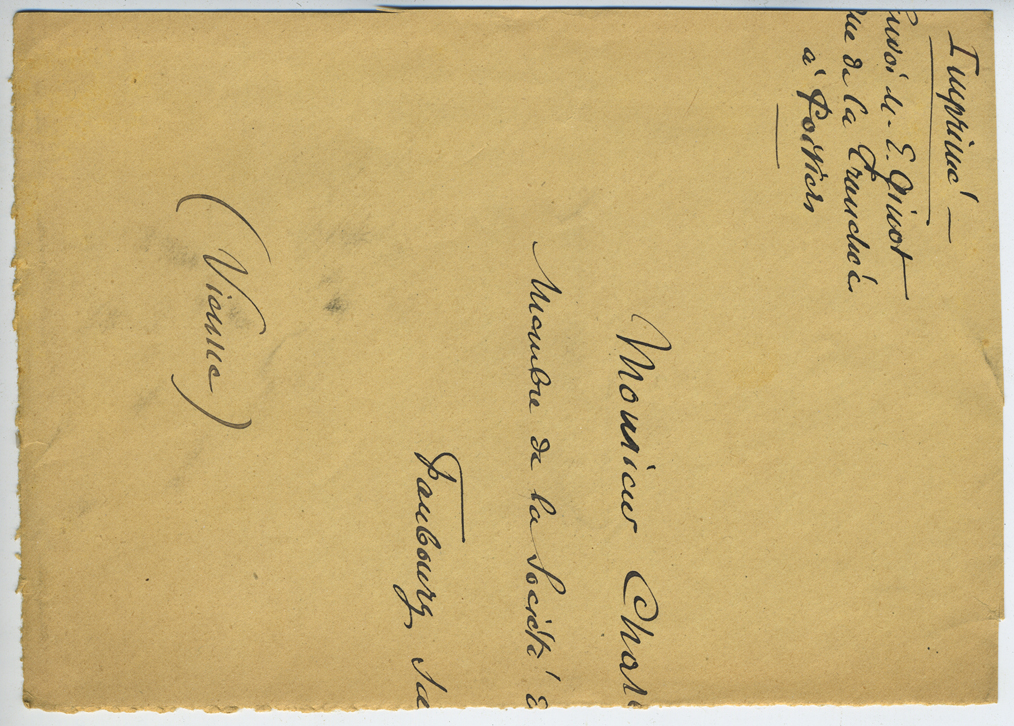 Imprimé —
Envoi de E. Givot
rue de la Tranchée
à Poitiers
Monsieur Char
Membre de la Société
Faubourg
(Vienne)